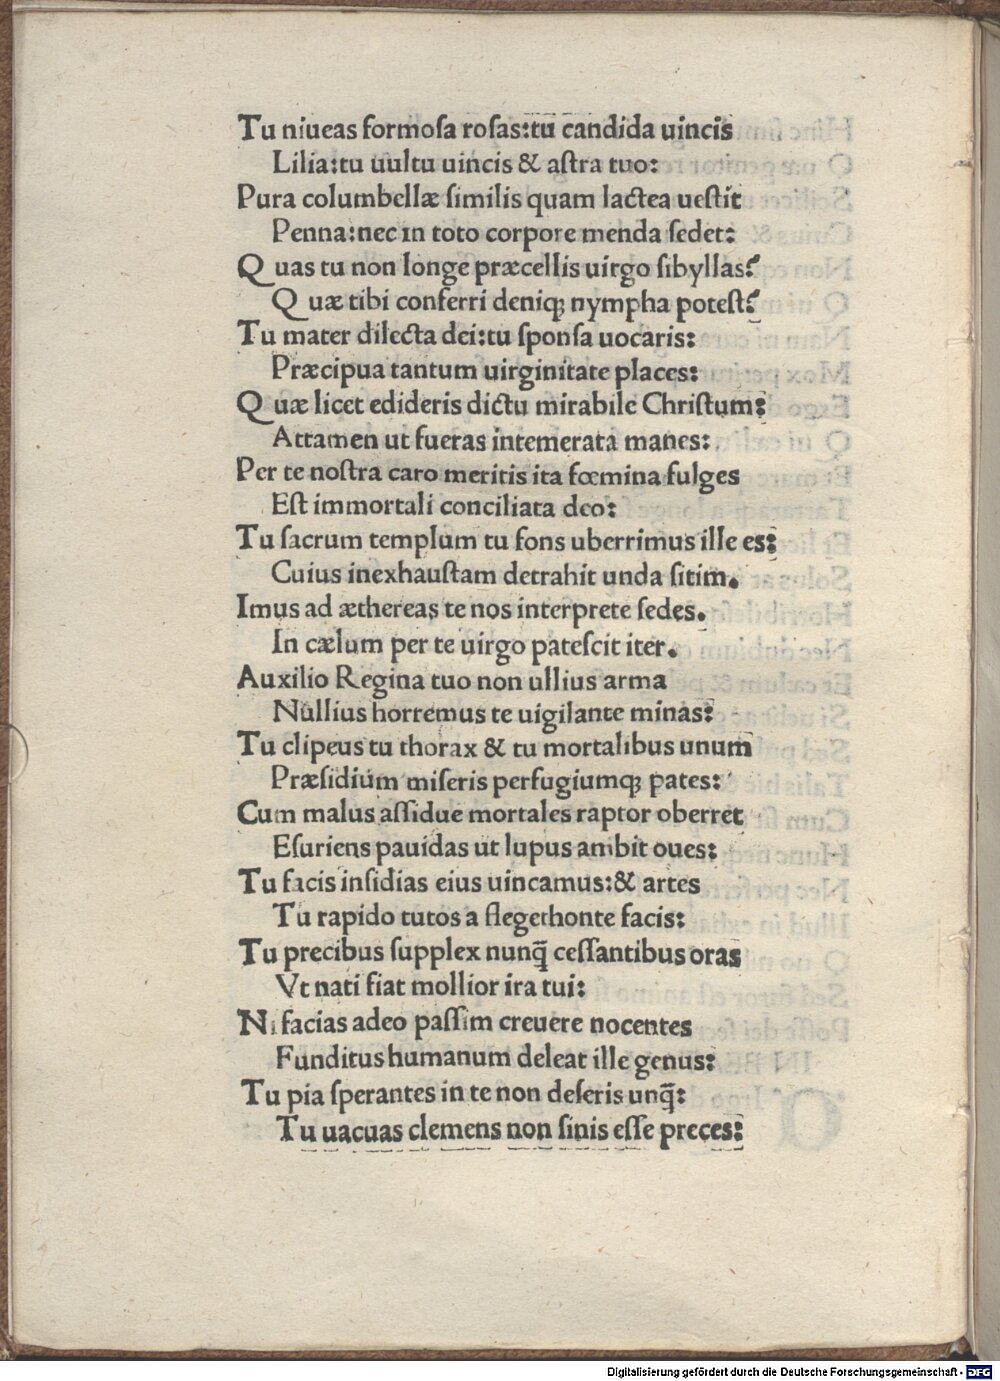 Tu niueas formoſa roſas:tu candida uincis
Lilia:tu uultu uincis & aſtra tuo:
Pura columbellæ ſimilis quam lactea ueſtit
Penna:nec in toto corpore menda ſedet:
Q uas tu non longe præcellis uirgo ſibyllas?
Q uæ tibi conferri deniqꝫ nympha poteſt?
Tu mater dilecta dei:tu ſponſa uocaris:
Præcipua tantum uirginitate places:
Q uæ licet edideris dictu mirabile Chriſtum:
Attamen ut fueras intemerata manes:
Per te noſtra caro meritis ita fœmina fulges
Eſt immortali conciliata deo:
Tu ſacrum templum tu fons uberrimus ille es:
Cuius inexhauſtam detrahit unda ſitim.
Imus ad æthereas te nos interprete ſedes.
In cælum per te uirgo pateſcit iter.
Auxilio Regina tuo non ullius arma
Nullius horremus te uigilante minas:
Tu clipeus tu thorax & tu mortalibus unum
Præſidium miſeris perfugiumqꝫ pates:
Cum malus aſſidue mortales raptor oberret
Eſuriens pauidas ut lupus ambit oues:
Tu facis inſidias eius uincamus:& artes
Tu rapido tutos a flegethonte facis:
Tu precibus ſupplex nunq̄ ceſſantibus oras
Vt nati fiat mollior ira tui:
Ni facias adeo paſſim creuere nocentes
Funditus humanum deleat ille genus:
Tu pia ſperantes in te non deſeris unq̄:
Tu uacuas clemens non ſinis eſſe preces:
Digitalisierung gefördert durch die Deutsche Forschungsgemeinschaft - DFG